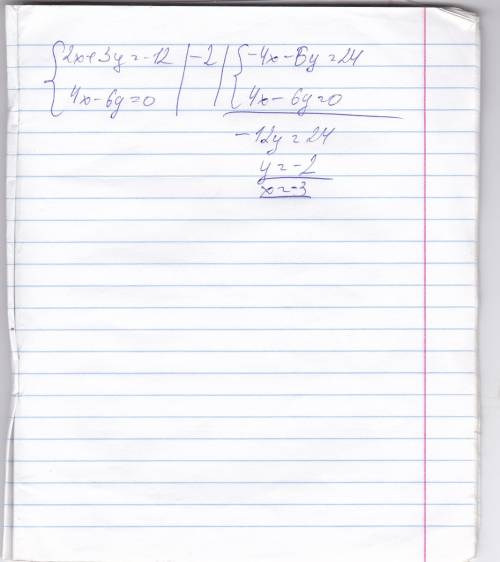 {2x+3y=-12 |-2| {-4x-6y=24
{4x-6y=0 | | {4x-6y=0
-12y=24
y=-2
x=-3